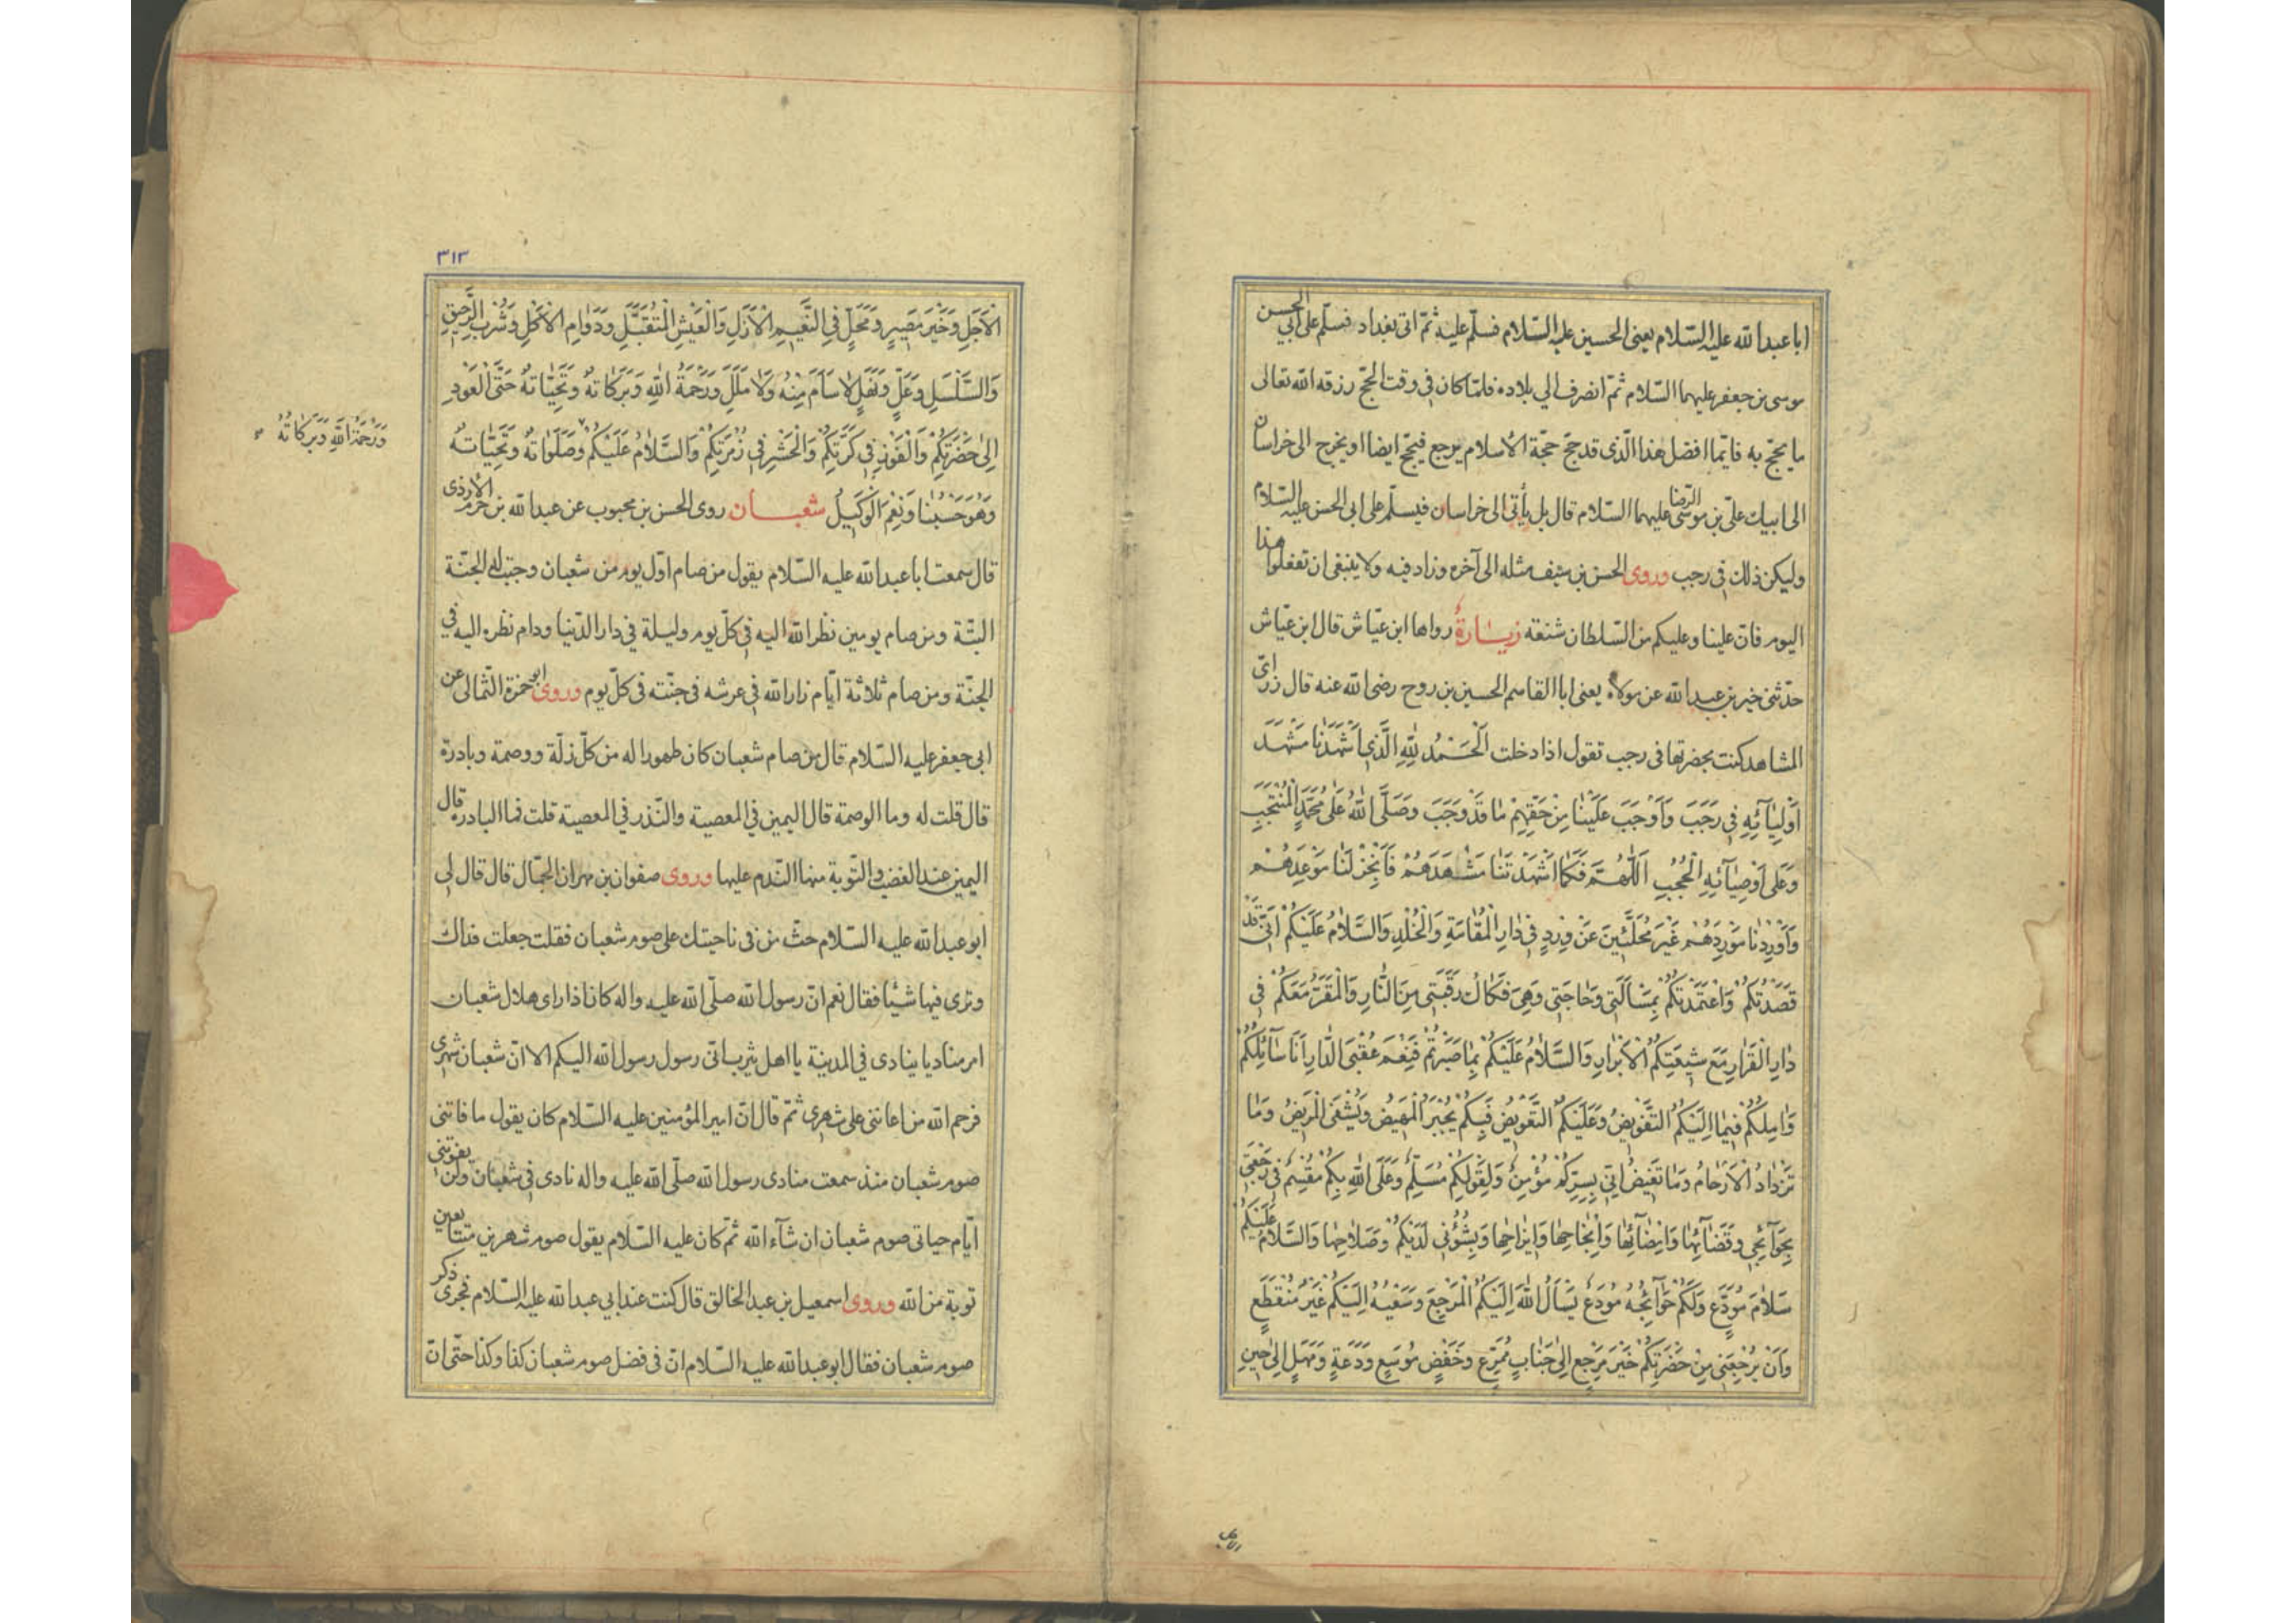 ابا عبد الله عليه السّلام يعنى الحسين عليه السّلام فسلّم عليه ثمّ اتى بغداد فسلّم على ابي الحسن
موسى بن جعفر عليهما السّلام ثمّ انصرف الي بلاده فلمّا كان في وقت الحجّ رزقه الله تعالى
ما يحجّ به فايّما افضل هذا الّذى قد حجّ حجّة الاسلام يرجع فيحجّ ايضا او يخرج الى خراسان
الى ابيات علىّ بن موسى الرّضا عليهما السّلام قال بل يأتى الى خراسان فيسلّم على ابى الحسن عليه السّلام
وليكن ذلك فى رجب وروى الحسن بن سيف مثله الى آخره وزاد فيه ولا ينبغى ان تفعلوا هذا
اليوم فانّ علينا وعليكم من السّلطان شنعة زيارةٌ رواها ابن عيّاش قال ابن عيّاش
حدّثنى خير بن عبد الله عن مولاه يعنى ابا القاسم الحسين بن روح رضى الله عنه قال زر اىّ
المشاهد كنت بحضرتها فى رجب تقول اذا دخلت اَلْحَمْدُ لِلّٰهِ الَّذِي اَشْهَدَنَا مَشْهَدَ
اَوْلِيٰآئِهِ فِي رَجَبَ وَاَوْجَبَ عَلَيْنٰا مِنْ حَقِّهِمْ مٰا قَدْ وَجَبَ وَصَلَّى اللّٰهُ عَلىٰ مُحَمَّدٍ الْمُنْتَجَبِ
وَعَلىٰ اَوْصِيٰآئِهِ الْحُجُبِ اَللّٰهُمَّ فَكَمٰا اَشْهَدْتَنٰا مَشْهَدَهُمْ فَاَنْجِزْ لَنٰا مَوْعِدَهُمْ
وَاَوْرِدْنٰا مَوْرِدَهُمْ غَيْرَ مُحَلَّئِينَ عَنْ وِرْدٍ فِي دٰارِ الْمُقٰامَةِ وَالْخُلْدِ وَالسَّلٰامُ عَلَيْكُمْ اِنّي قَدْ
قَصَدْتُكُمْ وَاعْتَمَدْتُكُمْ بِمَسْأَلَتِي وَحٰاجَتِي وَهِيَ فَكٰاكُ رَقَبَتِي مِنَ النّٰارِ وَالْمَقَرُّ مَعَكُمْ فِي
دٰارِ الْقَرٰارِ مَعَ شِيعَتِكُمُ الْاَبْرٰارِ وَالسَّلٰامُ عَلَيْكُمْ بِمٰا صَبَرْتُمْ فَنِعْمَ عُقْبَى الدّٰارِ اَنَا سٰآئِلُكُمْ
وَاٰمِلُكُمْ فِيمٰا اِلَيْكُمُ التَّفْوِيضُ وَعَلَيْكُمُ التَّعْوِيضُ فَبِكُمْ يُجْبَرُ الْمَهِيضُ وَيُشْفَى الْمَرِيضُ وَمٰا
تَزْدٰادُ الْاَرْحٰامُ وَمٰا تَغِيضُ اِنّي بِسِرِّكُمْ مُؤْمِنٌ وَلِقَوْلِكُمْ مُسَلِّمٌ وَعَلَى اللّٰهِ بِكُمْ مُقْسِمٌ فِي رَجْعَتِي
بِحَوٰآئِجِي وَقَضٰآئِهٰا وَاِمْضٰآئِهٰا وَاِنْجٰاحِهٰا وَاِبْرٰاحِهٰا وَبِشُؤُنِي لَدَيْكُمْ وَصَلٰاحِهٰا وَالسَّلٰامُ عَلَيْكُمْ
سَلٰامَ مُوَدِّعٍ وَلَكُمْ حَوٰآئِجَهُ مُودِعٌ يَسْأَلُ اللّٰهَ اِلَيْكُمُ الْمَرْجِعَ وَسَعْيُهُ اِلَيْكُمْ غَيْرُ مُنْقَطِعٍ
وَاَنْ يُرْجِعَنِي مِنْ حَضْرَتِكُمْ خَيْرَ مَرْجِعٍ اِلىٰ جَنٰابٍ مُمْرِعٍ وَخَفْضٍ مُوسَعٍ وَدَعَةٍ وَمَهَلٍ اِلىٰ حِينِ
الاجل
٣١٣
الْاَجَلِ وَخَيْرَ مَصِيرٍ وَمَحَلٍّ فِي النَّعِيمِ الْاَزَلِ وَالْعَيْشِ الْمُتَقَبَّلِ وَدَوٰامِ الْاُكُلِ وَشُرْبِ الرَّحِيقِ
وَالسَّلْسَلِ وَعَلٍّ وَنَهَلٍ لٰا سَأَمَ مِنْهُ وَلٰا مَلَلَ وَرَحْمَةُ اللّٰهِ وَبَرَكٰاتُهُ وَتَحِيّٰاتُهُ حَتَّى الْعَوْدِ
اِلىٰ حَضْرَتِكُمْ وَالْفَوْزِ فِي كَرَّتِكُمْ وَالْحَشْرِ فِي زُمْرَتِكُمْ وَالسَّلٰامُ عَلَيْكُمْ وَصَلَوٰاتُهُ وَتَحِيّٰاتُهُ
وَرَحْمَةُ اللّٰهِ وَبَرَكٰاتُهُ
وَهُوَ حَسْبُنٰا وَنِعْمَ الْوَكِيلُ شعبان روى الحسن بن محبوب عن عبد الله بن حزم الازدى
قال سمعت ابا عبد الله عليه السّلام يقول من صام اوّل يوم من شعبان وجبت له الجنّة
البتّة ومن صام يومين نظر الله اليه في كلّ يوم وليلة في دار الدّنيا ودام نظره اليه في
الجنّة ومن صام ثلاثة ايّام زار الله في عرشه فى جنّته فى كلّ يوم وروى ابو حمزة الثّمالى عن
ابى جعفر عليه السّلام قال من صام شعبان كان طهورا له من كلّ زلّة ووصمة وبادرة
قال قلت له وما الوصمة قال اليمين في المعصية والنّذر في المعصية قلت فما البادرة قال
اليمين عند الغضب والتّوبة منها النّدم عليها وروى صفوان بن مهران الجمّال قال قال لى
ابو عبد الله عليه السّلام حثّ من فى ناحيتك على صوم شعبان فقلت جعلت فداك
وترى فيها شيئا فقال نعم انّ رسول الله صلّى الله عليه واله كان اذا راى هلال شعبان
امر مناديا ينادى في المدينة يا اهل يثرب انّى رسول رسول الله اليكم الا انّ شعبان شهرى
فرحم الله من اعاننى على شهرى ثمّ قال انّ امير المؤمنين عليه السّلام كان يقول ما فاتنى
صوم شعبان منذ سمعت منادى رسول الله صلّى الله عليه واله نادى في شعبان ولن يفوتنى
ايّام حياتى صوم شعبان ان شآء الله ثمّ كان عليه السّلام يقول صوم شهرين متتابعين
توبة من الله وروى اسمعيل بن عبد الخالق قال كنت عند ابي عبد الله عليه السّلام فجرى ذكر
صوم شعبان فقال ابو عبد الله عليه السّلام انّ فى فضل صوم شعبان كذا وكذا حتّى انّ